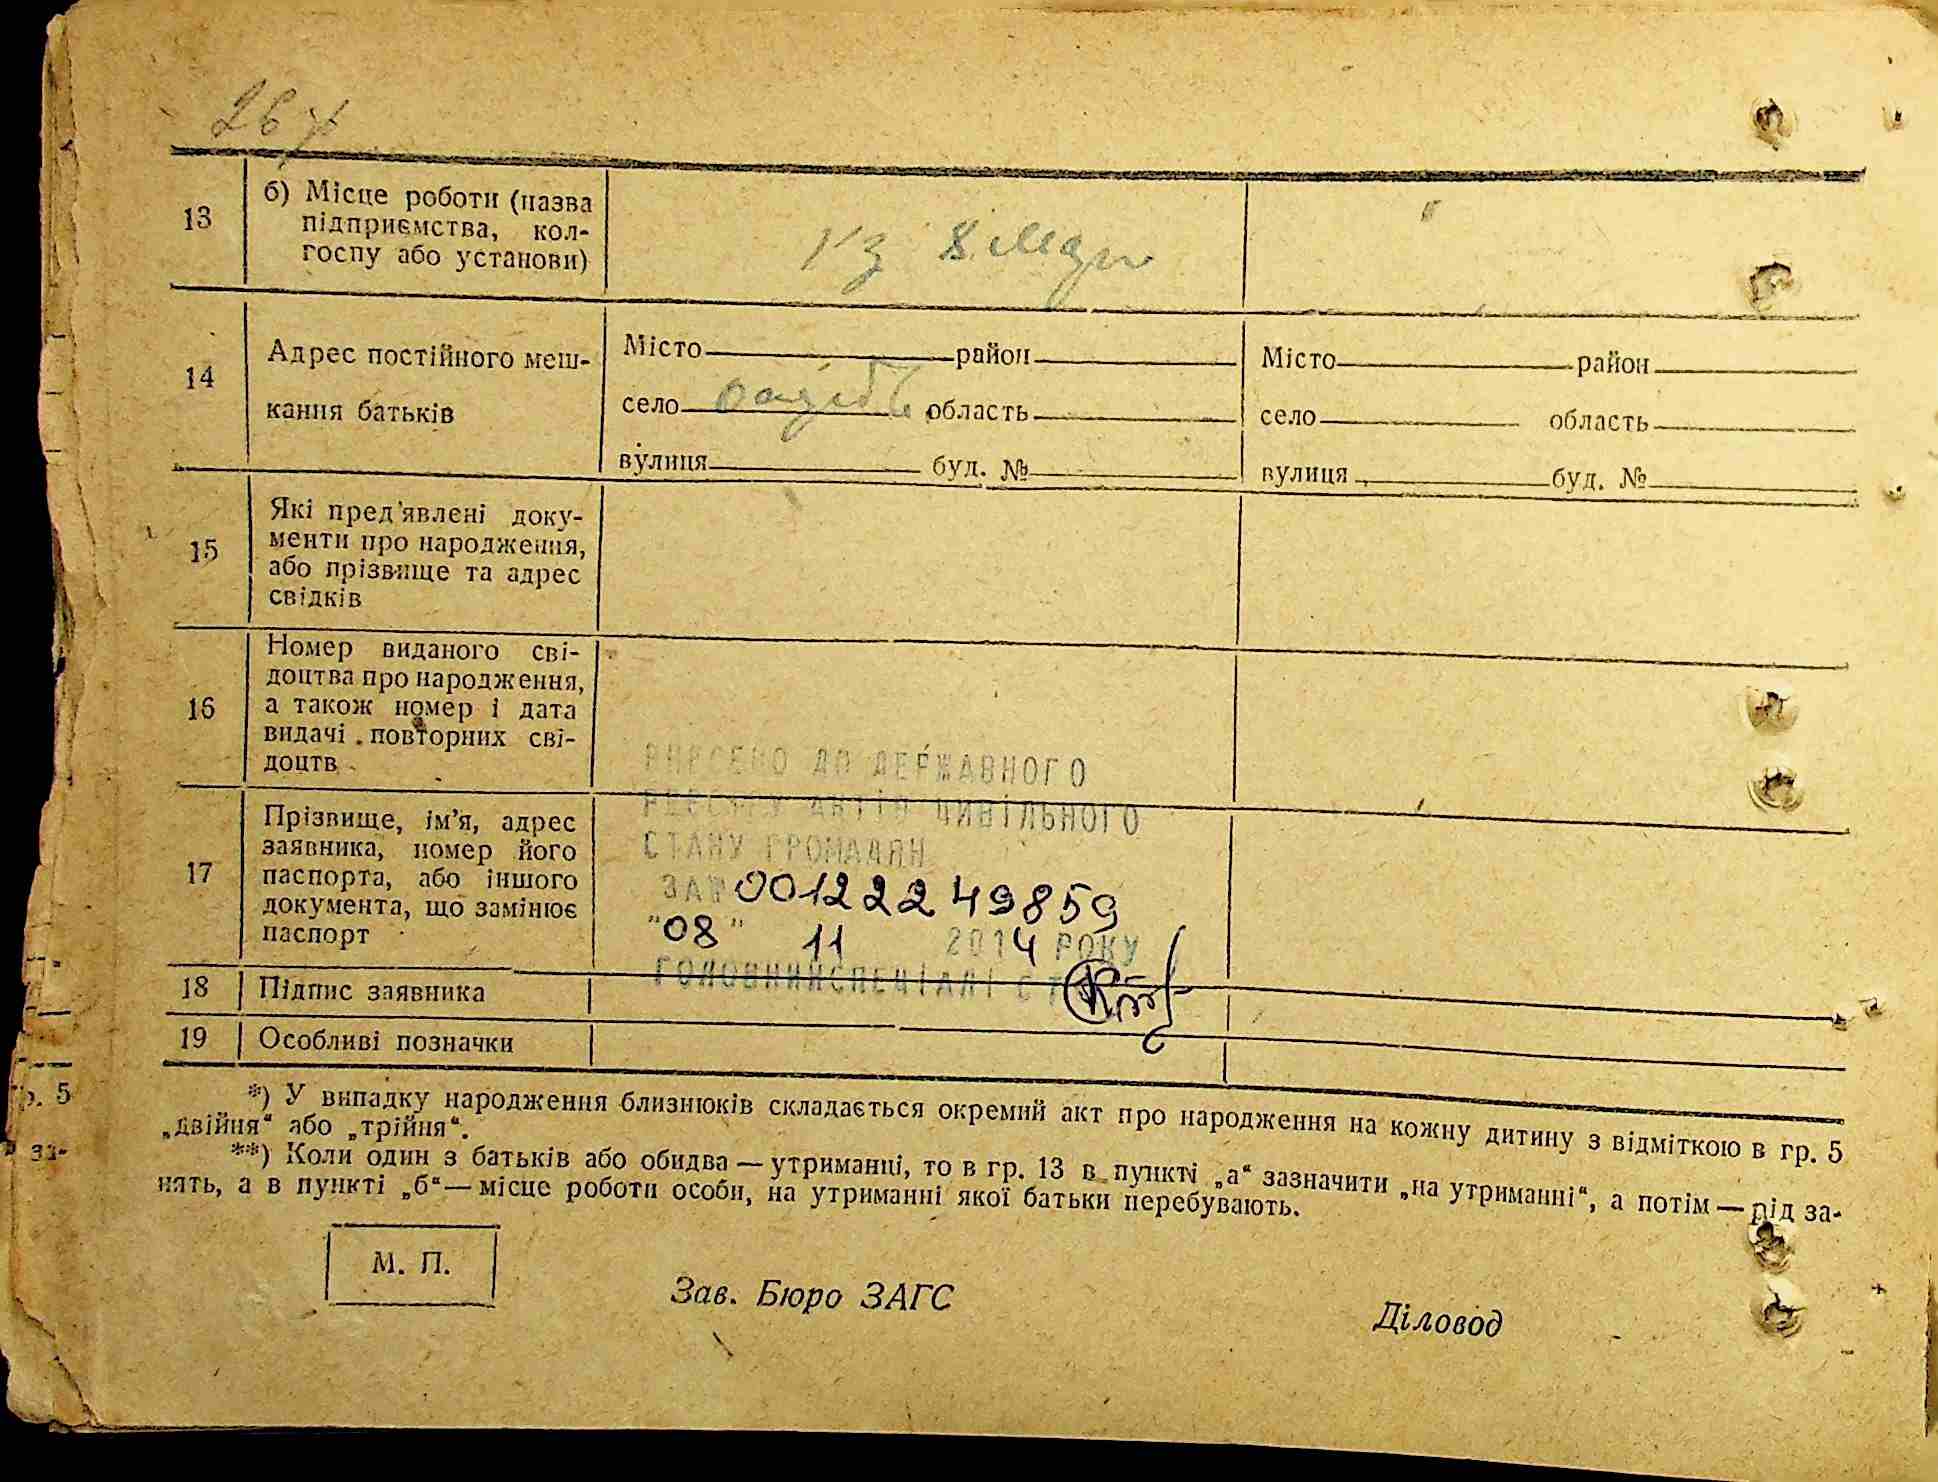 13
б) Місце роботи (назва
підприємства, кол-
госпу або установи)
14
Адрес постійного меш-
кання батьків
Місто район
село область
вулиця буд. №
Місто район
село область
вулиця буд. №
15
Які пред'явлені доку-
менти про народження,
або прізвище та адрес
свідків
16
Номер виданого сві-
доцтва про народження,
а також номер і дата
видачі повторних сві-
доцтв
17
Прізвище, ім'я, адрес
заявника, номер його
паспорта, або іншого
документа, що замінює
паспорт
ВНЕСЕНО ДО ДЕРЖАВНОГО
РЕЄСТРУ АКТІВ ЦИВІЛЬНОГО
СТАНУ ГРОМАДЯН
ЗА № 00122249859
"08" 11 2014 РОКУ
ГОЛОВНИЙ СПЕЦІАЛІСТ
18
Підпис заявника
19
Особливі позначки
*) У випадку народження близнюків складається окремий акт про народження на кожну дитину з відміткою в гр. 5
„двійня“ або „трійня“.
**) Коли один з батьків або обидва — утриманці, то в гр. 13 в пункті „а“ зазначити „на утриманні“, а потім — рід за-
нять, а в пункті „б“ — місце роботи особи, на утриманні якої батьки перебувають.
М. П.
Зав. Бюро ЗАГС
Діловод